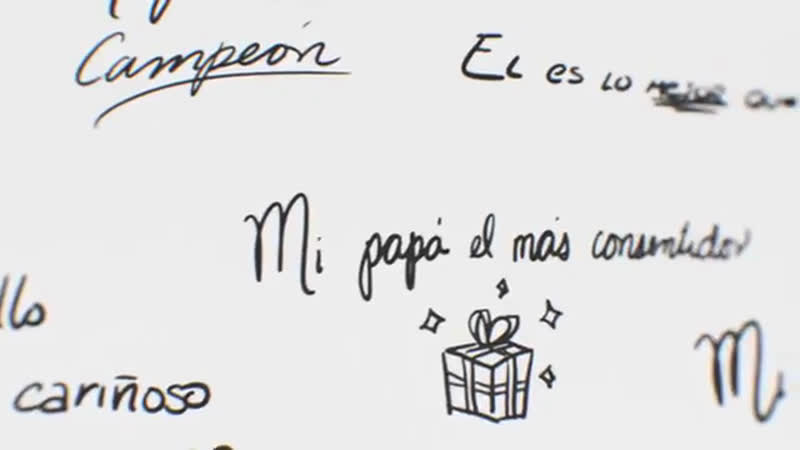 Campeón
El es lo
Mi papá el más consentidor
llo
cariñoso
Mi